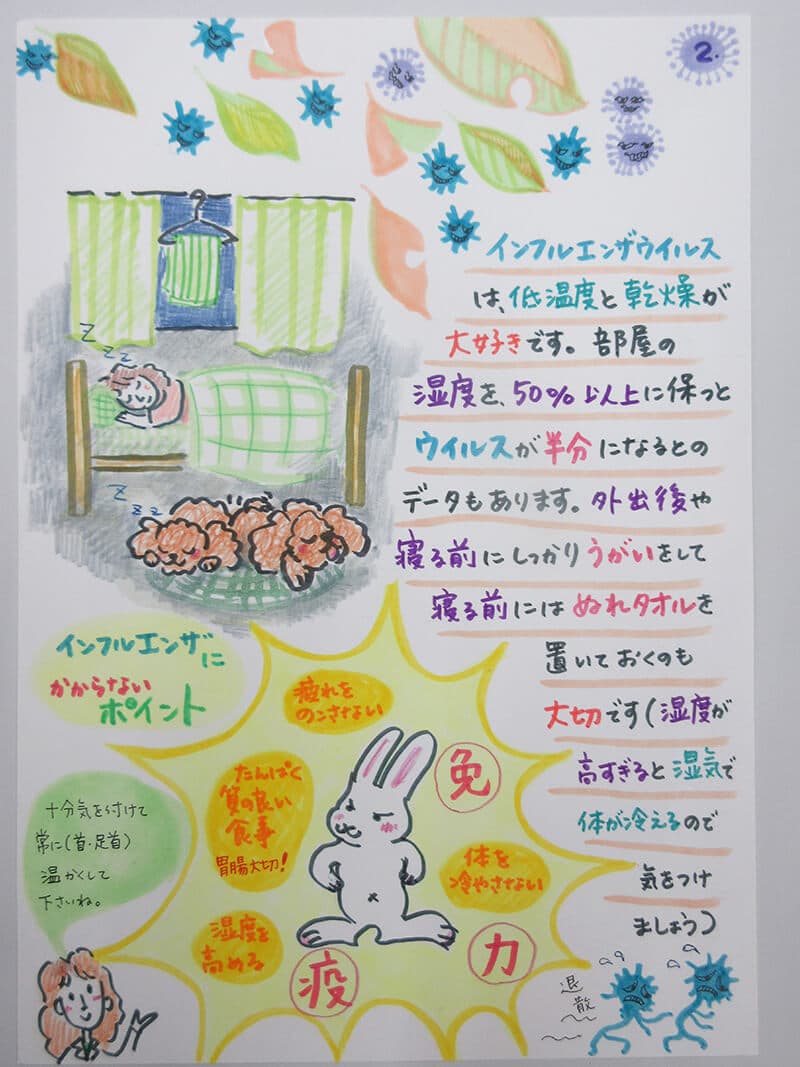 2.
インフルエンザウイルス
は、低温度と乾燥が
大好きです。部屋の
湿度を、50%以上に保っと
ウイルスが半分になるとの
データもあります。外出後や
寝る前にしっかりうがいをして
寝る前にはぬれタオルを
置いておくのも
大切です(湿度が
高すぎると湿気で
体が冷えるので
気をつけ
ましょう)
z
z
z
z
z
z
z
インフルエンザに
かからない
ポイント
疲れを
のこさない
たんぱく
質の良い
食事
胃腸大切!
湿度を
高める
体を
冷やさない
免
疫
力
十分気を付けて
常に(首・足首)
温かくして
下さいね。
退
散